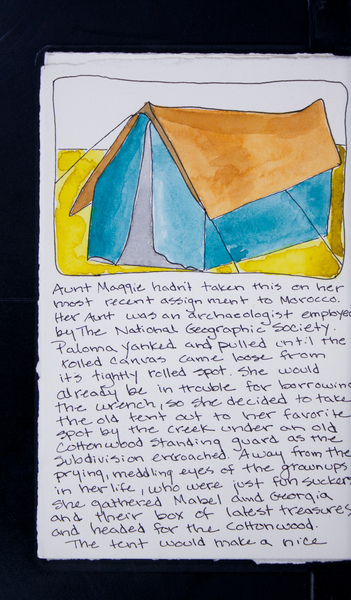 Aunt Maggie hadn't taken this on her
most recent assignment to Morocco.
Her Aunt was an archaeologist employed
by The National Geographic Society.
Paloma yanked and pulled until the
rolled canvas came loose from
its tightly rolled spot. She would
already be in trouble for borrowing
the wrench, so she decided to take
the old tent out to her favorite
spot by the creek under an old
Cottonwood standing guard as the
Subdivision encroached. Away from the
prying, meddling eyes of the grownups
in her life, who were just fun suckers
she gathered Mabel and Georgia
and their box of latest treasures
and headed for the cottonwood.
The tent would make a nice